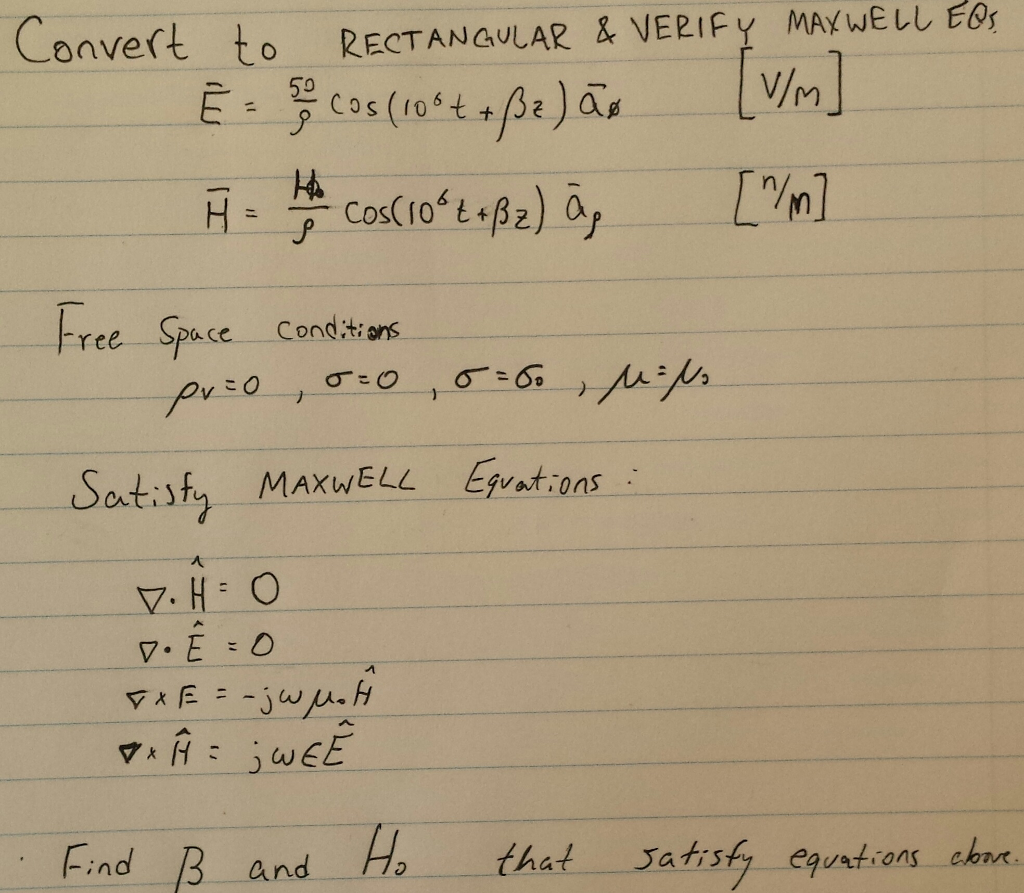 Convert to RECTANGULAR & VERIFY MAXWELL EQs.
Ē = 50/ρ cos(10⁶t + βz) ā_ø [V/m]
H̄ = H₀/ρ cos(10⁶t + βz) ā_ρ [n/m]
Free Space conditions
ρv = 0 , σ = 0 , σ = σ₀ , μ = μ₀
Satisfy MAXWELL Equations :
∇ · Ĥ = 0
∇ · Ê = 0
∇ × E = -jωμ₀Ĥ
∇ × Ĥ = jωεÊ
· Find β and H₀ that satisfy equations above.